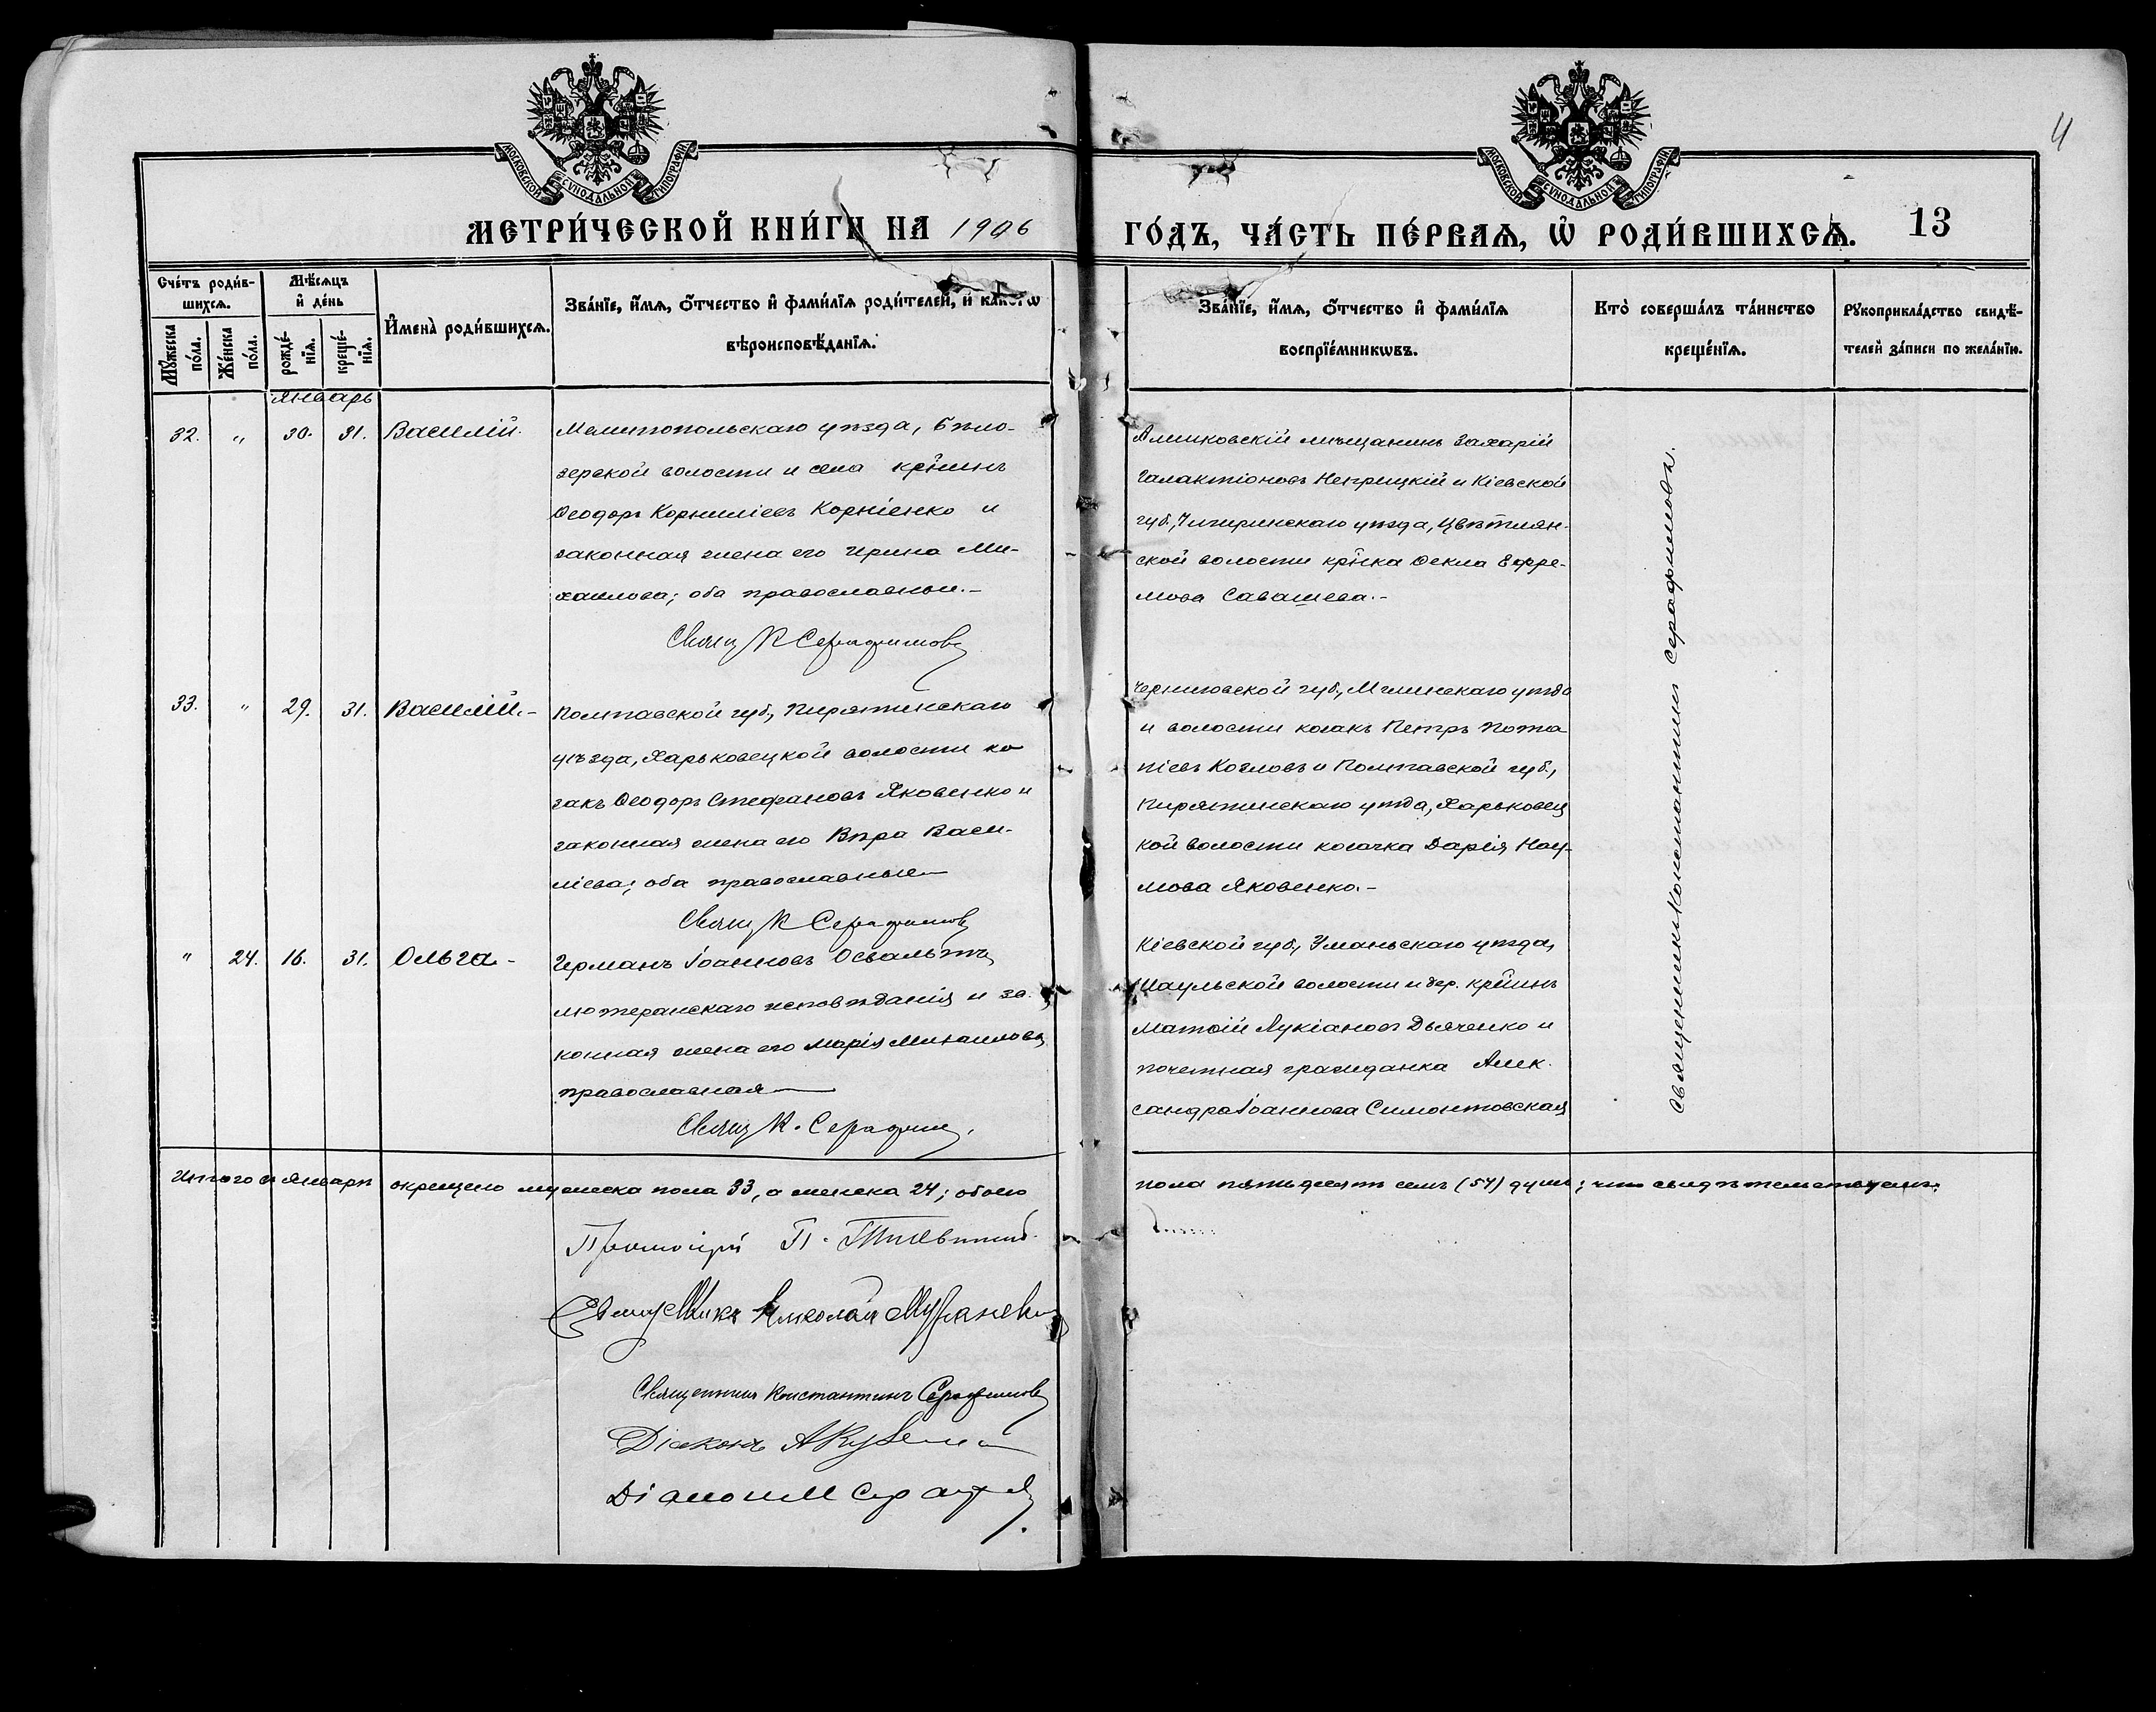 4
МОСКОВСКОЙ СѴНОДАЛЬНОЙ ТИПОГРАФІИ
МОСКОВСКОЙ СѴНОДАЛЬНОЙ ТИПОГРАФІИ
МЕТРИ́ЧЕСКОЙ КНИ́ГИ НА 1906
ГО́ДЪ, ЧА́СТЬ ПЕ́РВАѦ, Ѡ҆ РОДИ́ВШИХСѦ. 13
Сче́тъ роди́в-
шихсѧ.
Мѣ́сѧцъ
и҆ де́нь
Мꙋ́жеска
по́ла.
Же́нска
по́ла.
рожде́-
нїѧ.
креще́-
нїѧ.
И҆мена̀ роди́вшихсѧ.
Зва́нїе, и҆́мѧ, ѻ҆́тчество и҆ фами́лїѧ роди́телей, и҆ како́гѡ
вѣроисповѣ́данїѧ.
Зва́нїе, и҆́мѧ, ѻ҆́тчество и҆ фами́лїѧ
воспрїе́мникѡвъ.
Кто̀ соверша́лъ та́инство
креще́нїѧ.
Рꙋкоприкла́дство свидѣ́-
телей за́писи по жела́нїю.
январь
32. " 30. 31. Василій.
Мелитопольскаго уѣзда, Бѣло-
зерской волости и села кр̃нинъ
Ѳеодоръ Корниліевъ Корніенко и
законная жена его Ирина Ми-
хаилова; оба православные.-
Свящ К Серафимовъ
Алешковскій мѣщанинъ Захарій
Галактіоновъ Неприцкій и Кіевской
губ., Чигиринскаго уѣзда, Цвѣтлян-
ской волости кр̃нка Ѳекла Ефре-
мова Савашева.-
33. " 29. 31. Василій.-
Полтавской губ., Пирятинскаго
уѣзда, Харьковецкой волости ко
закъ Ѳеодоръ Стефановъ Яковенко и
законная жена его Вѣра Васи-
ліева; оба православные
Свящ К Серафимовъ
Черниговской губ., Мглинскаго уѣзда
и волости козакъ Петръ Пота
піевъ Козловъ и Полтавской губ.,
Пирятинскаго уѣзда, Харьковец
кой волости козачка Дарія Нау-
мова Яковенко.-
" 24. 16. 31. Ольга.-
Германъ Іоанновъ Освальтъ,
лютеранскаго исповѣданія и за-
конная жена его Марія Михаилова,
православная
Свящ К. Серафим.
Кіевской губ., Уманьскаго уѣзда,
волости и дер. кр̃нинъ
Матѳій Лукіановъ Дьяченко и
почетная гражданка Алек-
сандра Іоаннова Симонтовская
Священникъ Константинъ Серафимовъ.
Итого въ Январѣ окрещено мужеска пола 33, а женска 24; обоего
пола пятьдесятъ семь (57) душъ; что свидѣтельствуемъ:
Протоіерей П.
Священникъ Николай
Священникъ Константинъ Серафимовъ
Діаконъ А
Діаконъ